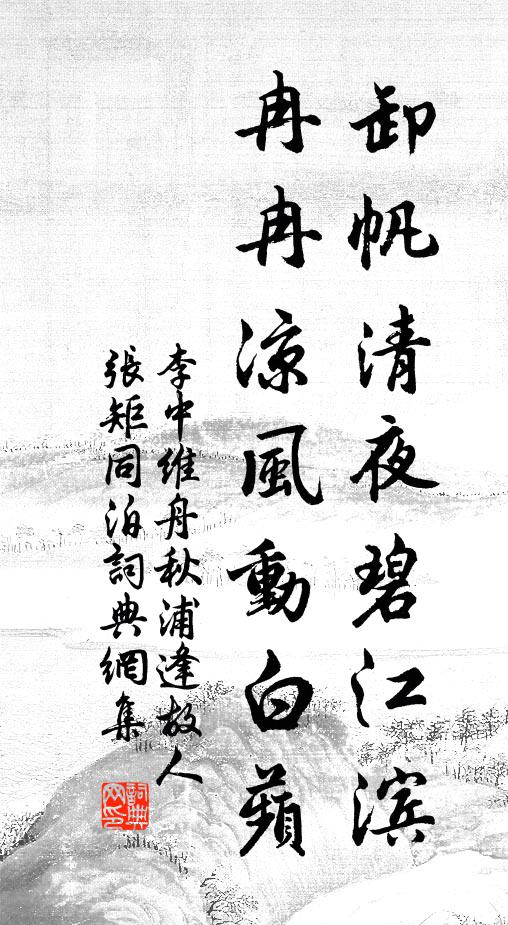 卸帆清夜碧江滨
冉冉凉風動白蘋
李中維舟秋浦逢故人
張矩同泊詞典網集
詞典
网印